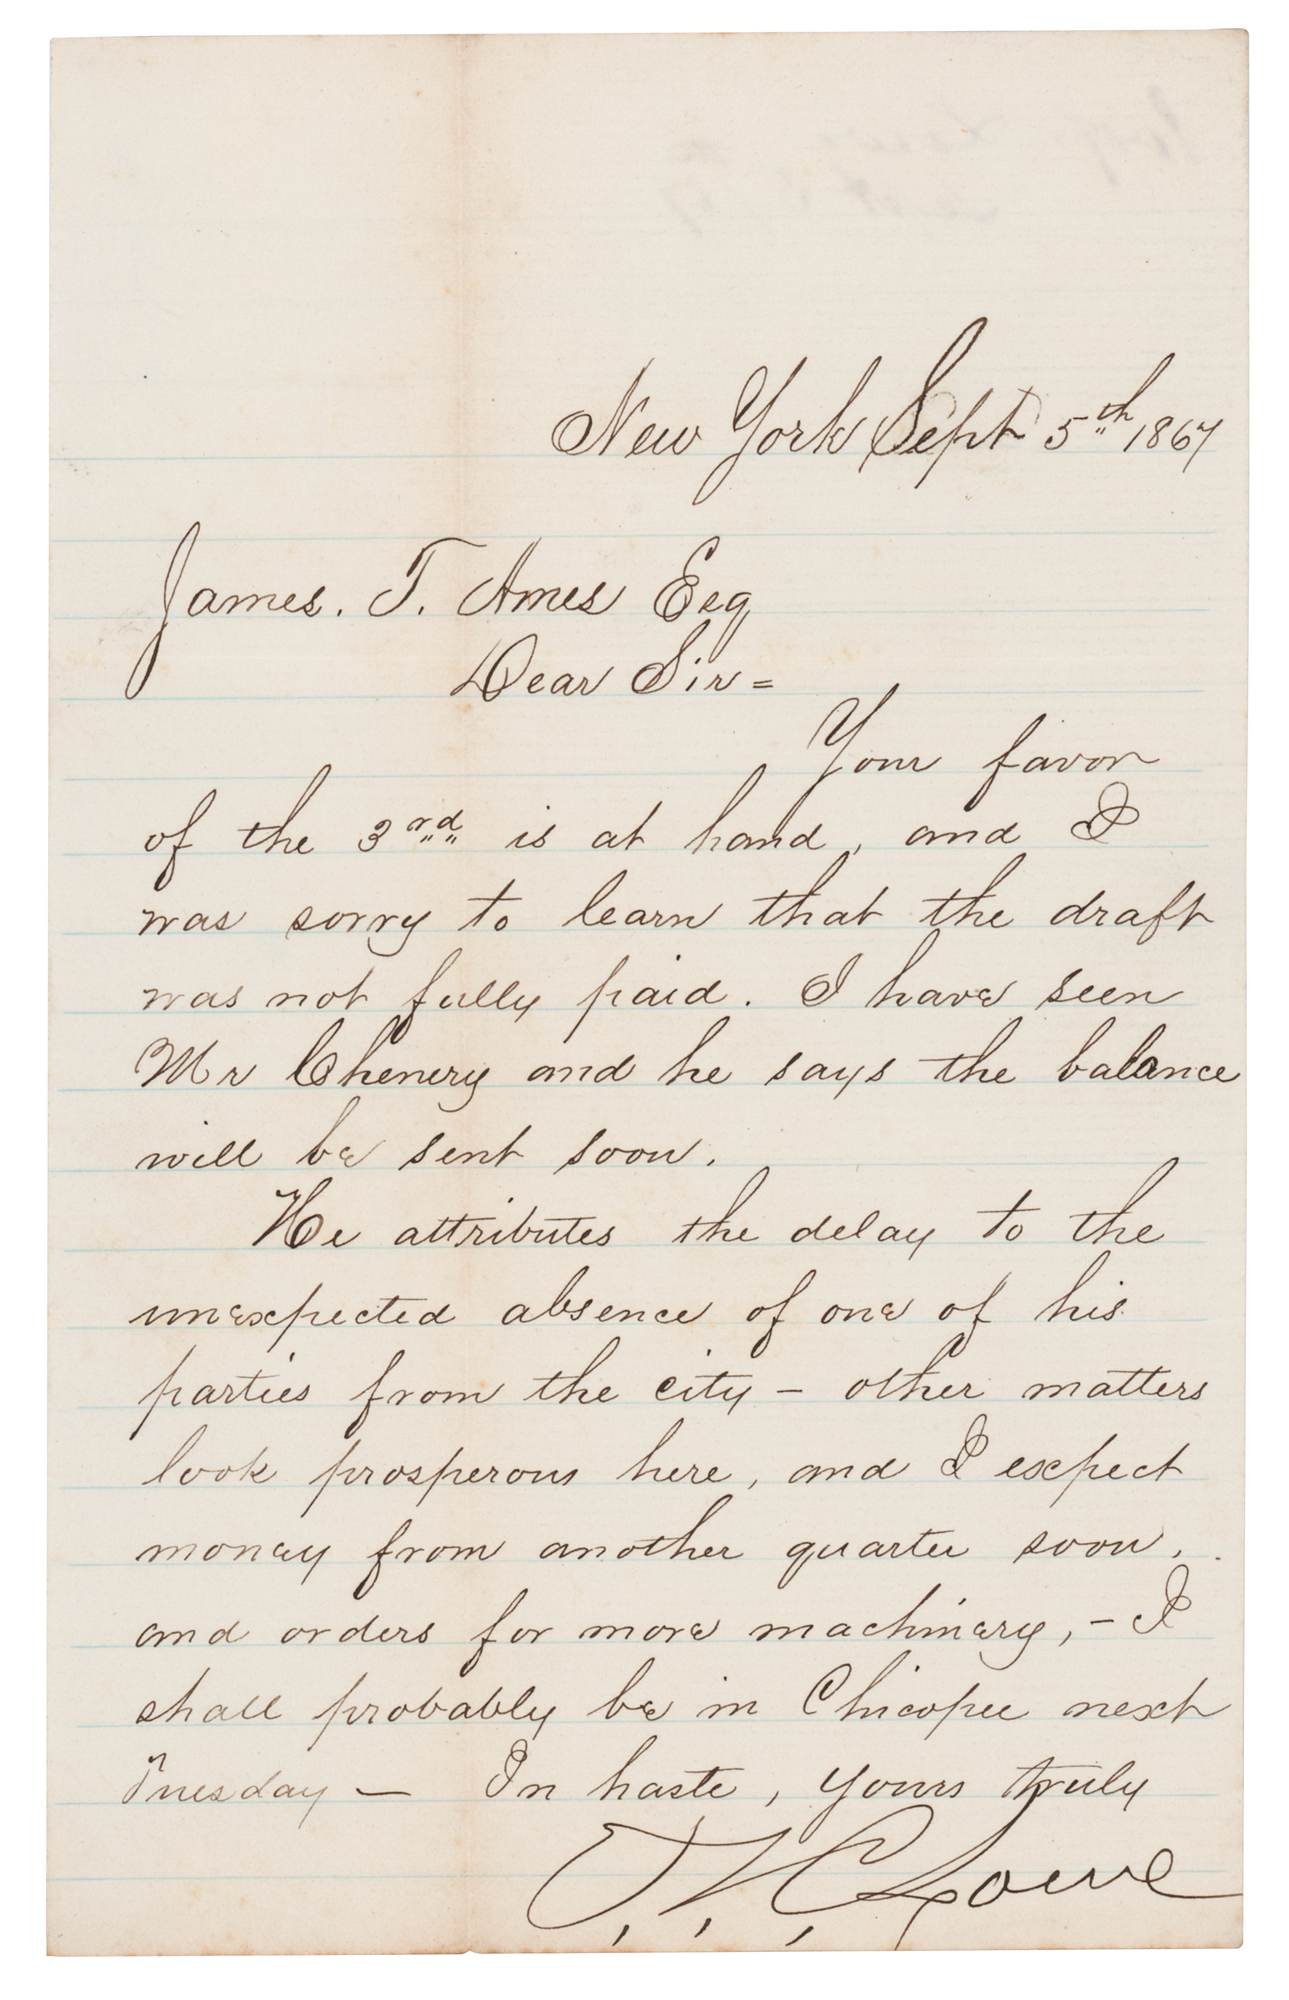 New York Sept 5th 1867
James. T. Ames Esq
Dear Sir =
Your favor
of the 3rd is at hand, and I
was sorry to learn that the draft
was not fully paid. I have seen
Mr Chenery and he says the balance
will be sent soon.
He attributes the delay to the
unexpected absence of one of his
parties from the city - other matters
look prosperous here, and I expect
money from another quarter soon,
and orders for more machinery, - I
shall probably be in Chicopee next
Tuesday — In haste, yours truly
T. S. C. Lowe